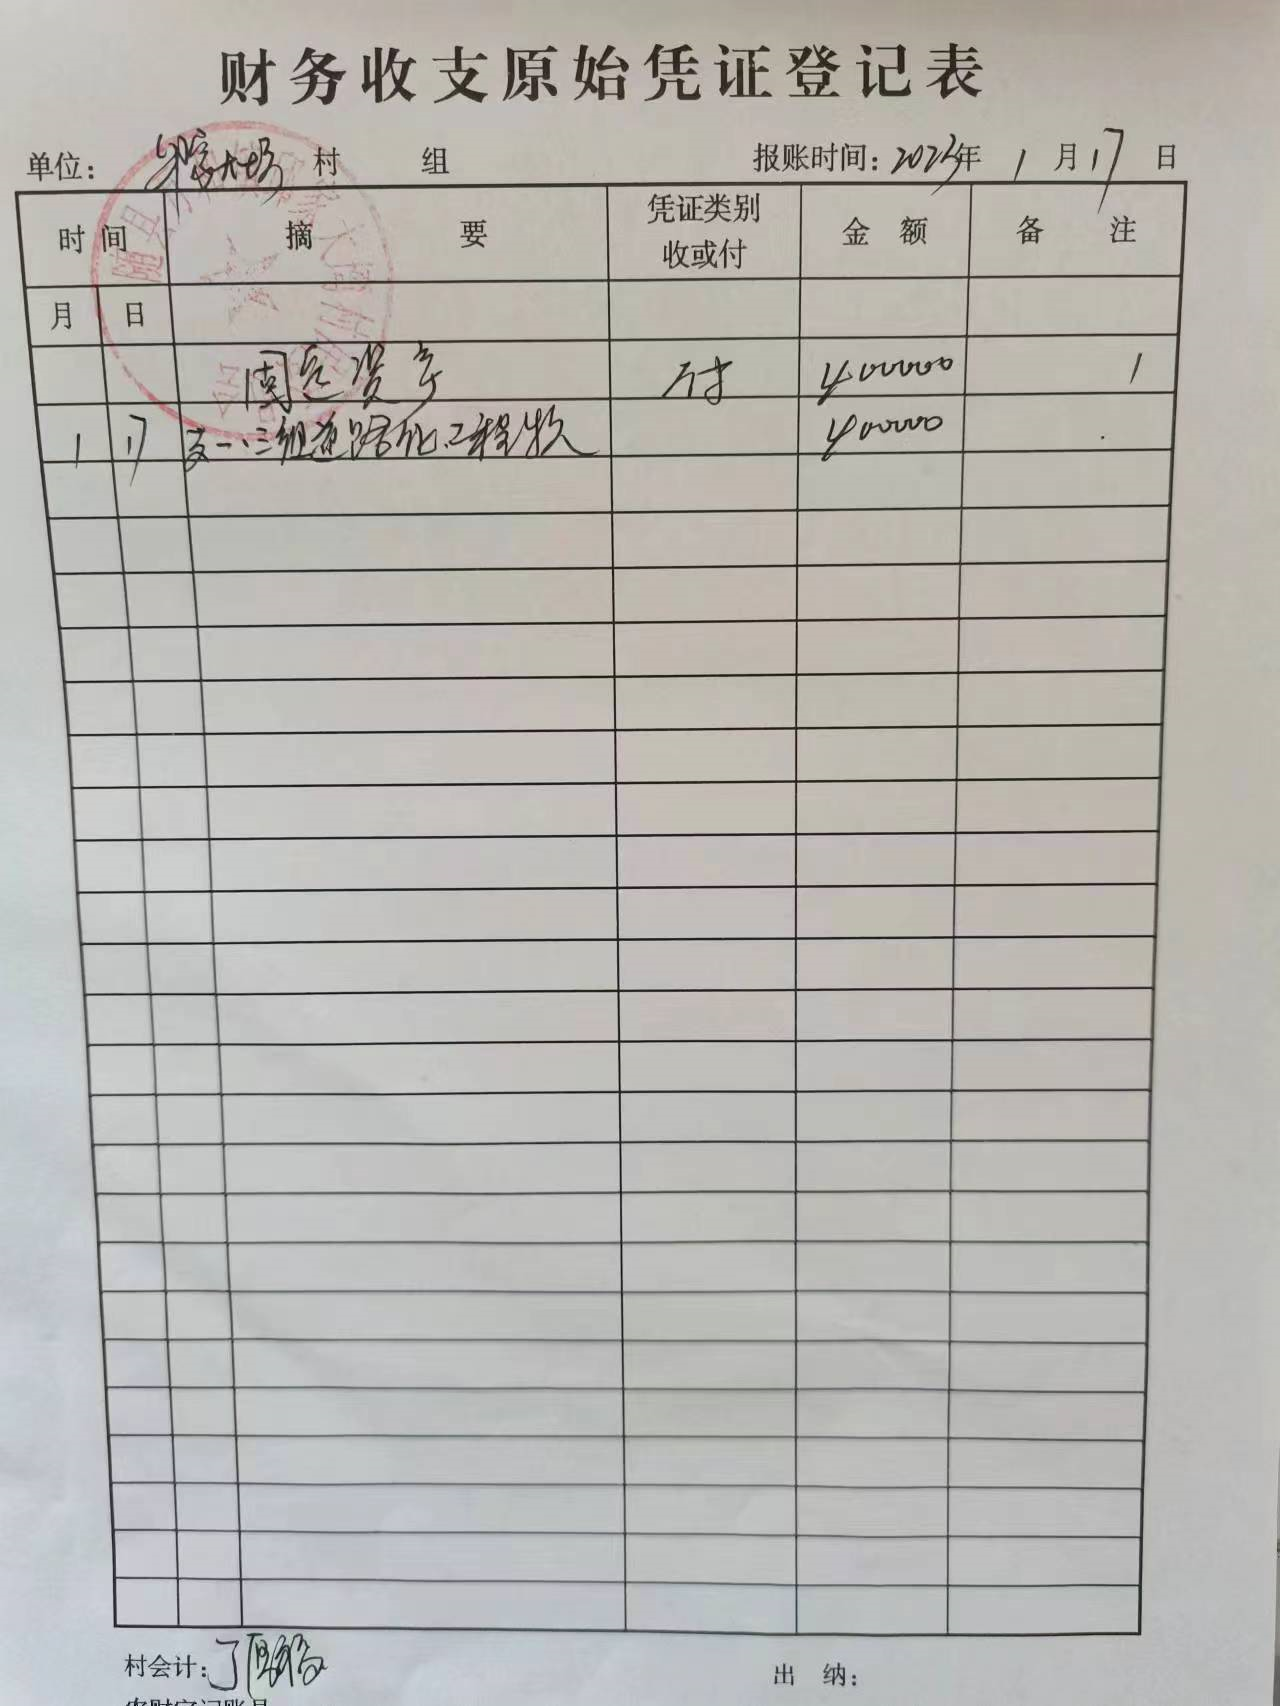 财务收支原始凭证登记表
单位： 大塆 村 组 报账时间：2023年 1 月 17 日
时间 摘要 凭证类别 收或付 金额 备注
月 日
固定资产 付 400000 1
1 17 支一、三组道路 化工程款 40000
村会计：丁
出纳：